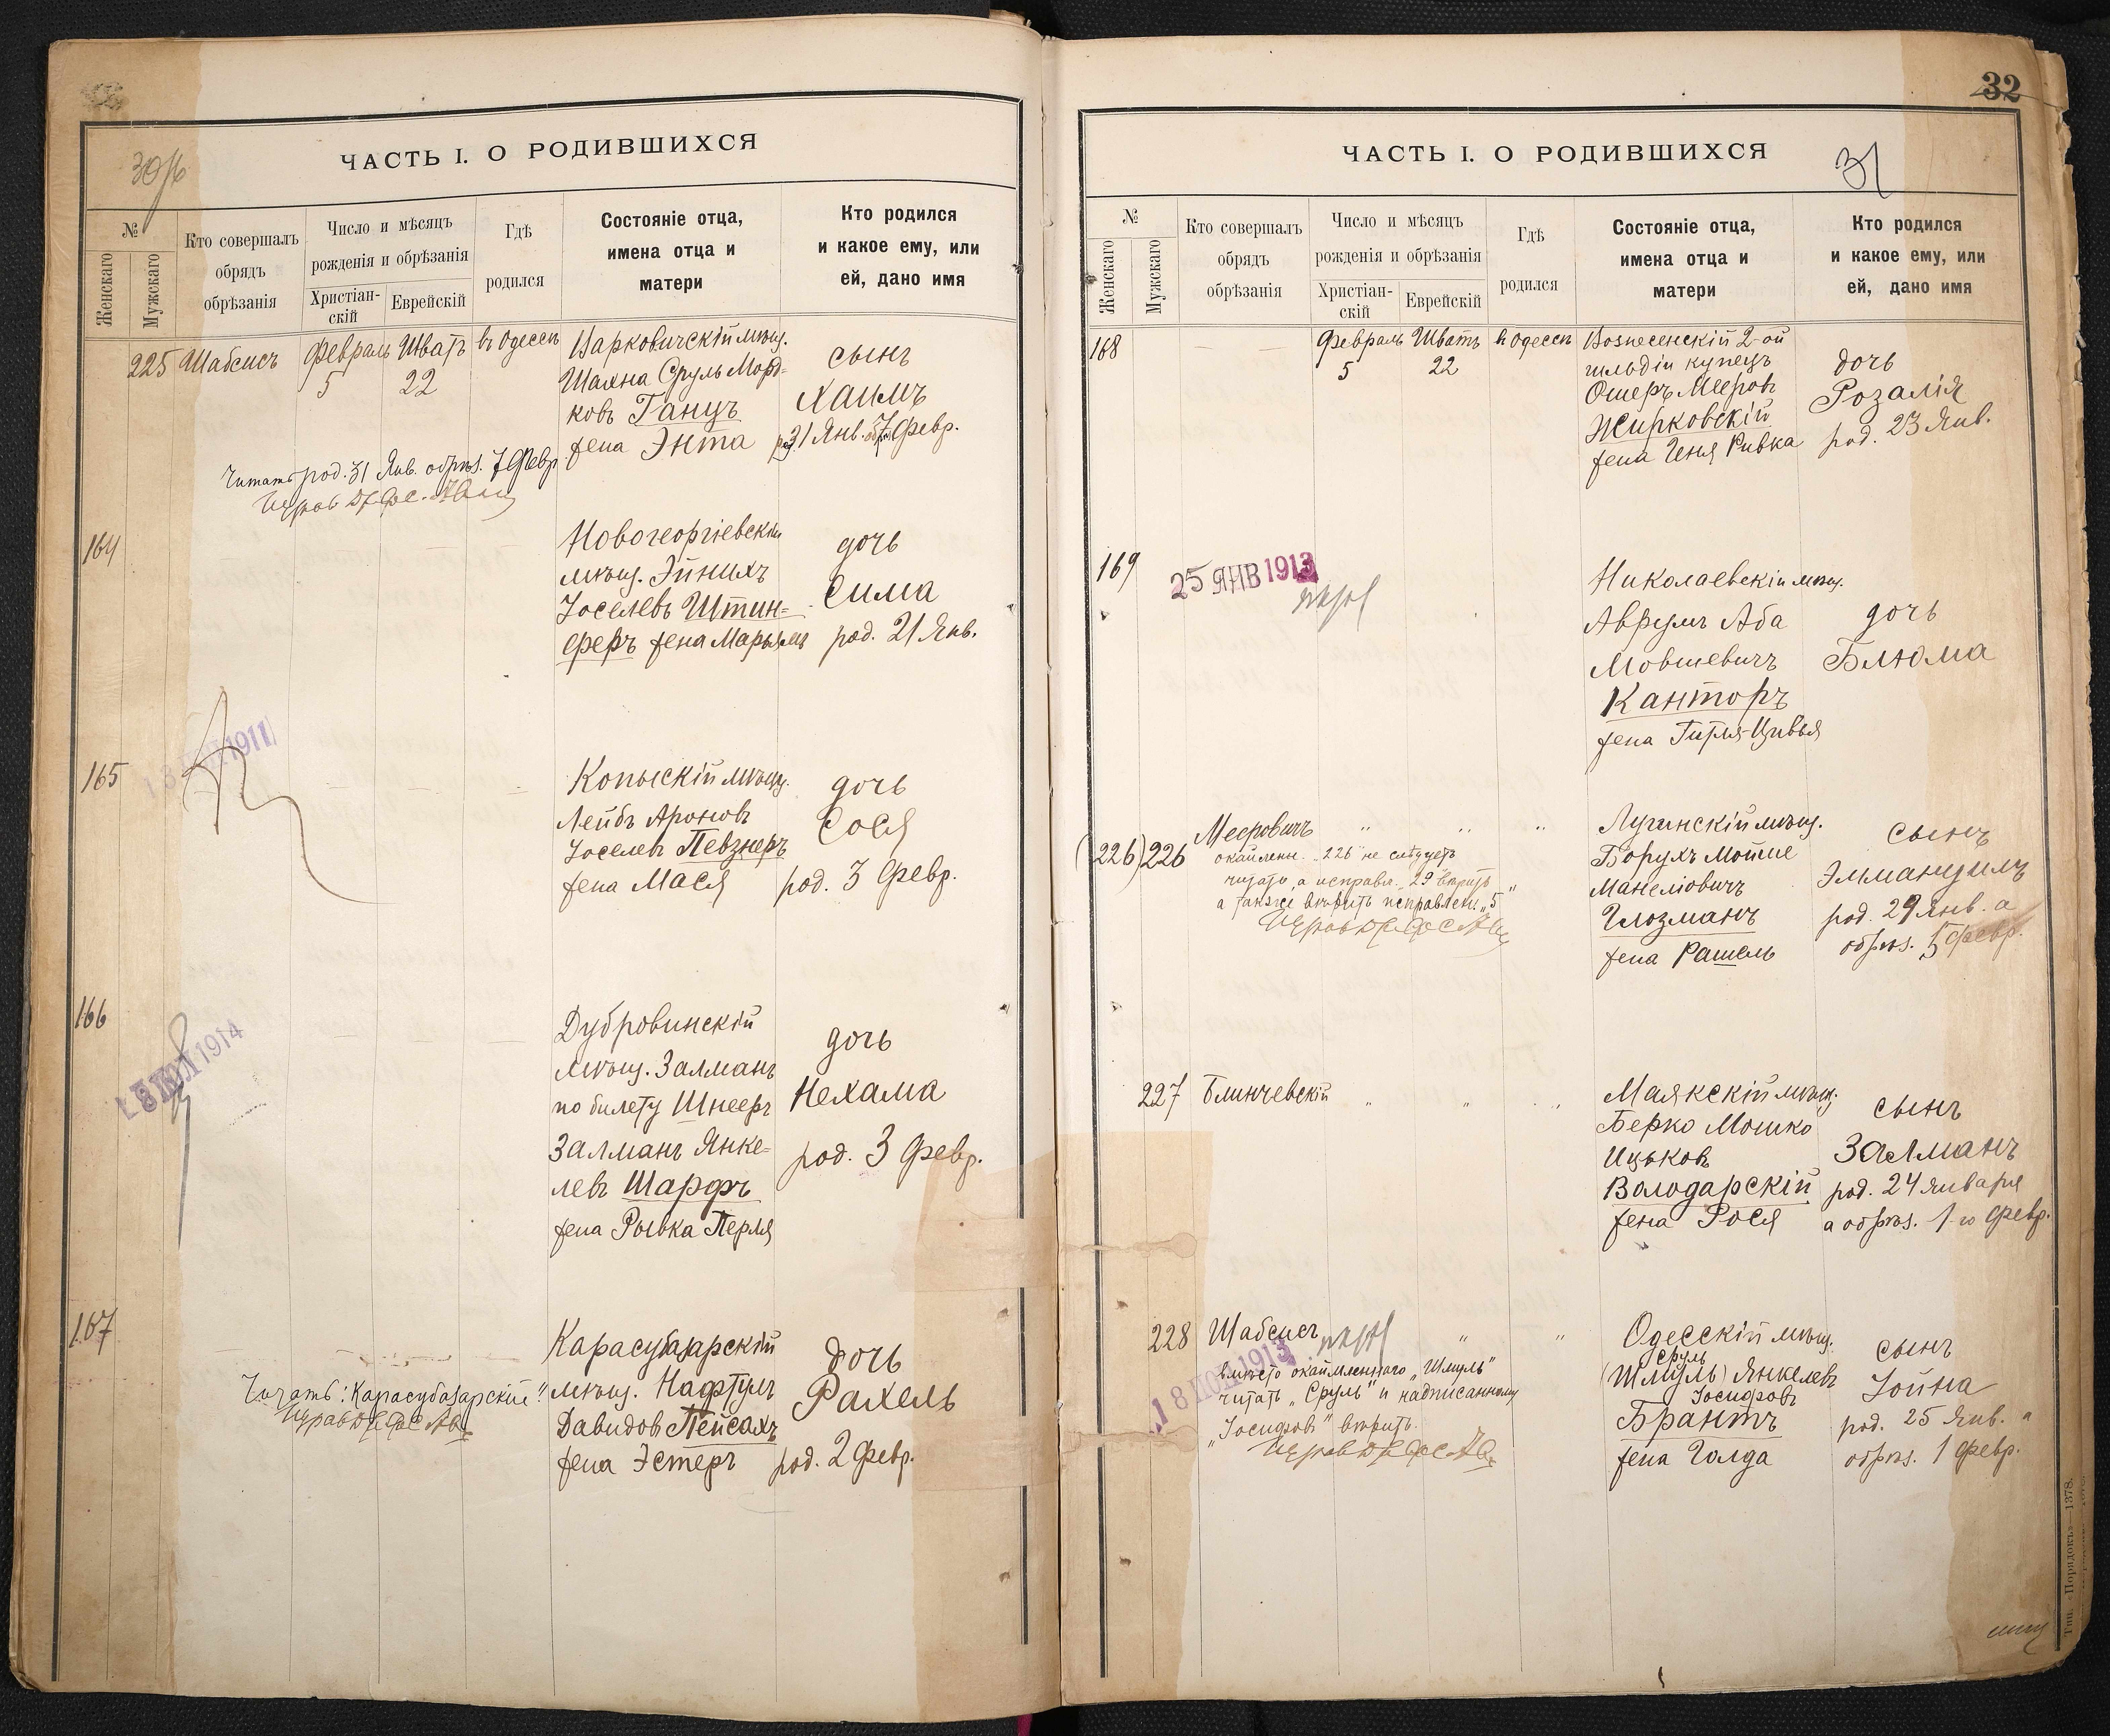 30об
ЧАСТЬ I. О РОДИВШИХСЯ
№
Женскаго
Мужскаго
Кто совершалъ
обрядъ
обрѣзанія
Число и мѣсяцъ
рожденія и обрѣзанія
Христіан-
скій
Еврейскій
Гдѣ
родился
Состояніе отца,
имена отца и
матери
Кто родился
и какое ему, или
ей, дано имя
225 Шабсисъ
Февраль
5
Шватъ
22
въ Одессѣ
Шахна Сруль Морд-
ковъ Ганцъ
жена Энта
сынъ
Хаимъ
р. 31 Янв. обр. 7 Февр.
Читать род. 31 Янв. обрѣз. 7 Февр.
164
Новогеоргіевскій
мѣщ. Эйнихъ
Іоселевъ Штин-
феръ жена Марьямъ
дочь
Сима
род. 21 Янв.
1911
165
Копыскій мѣщ.
Лейбъ Ароновъ
Іоселевъ Певзнеръ
жена Мася
дочь
Сося
род. 3 Февр.
1914
166
Дубровинскій
мѣщ. Залманъ
по билету Шнееръ
Залманъ Янке-
левъ Шарфъ
жена Рывка Перля
дочь
Нехама
род. 3 Февр.
167
Карасубазарскій
мѣщ. Нафтулъ
Давидовъ Пейсахъ
жена Эстеръ
дочь
Рахель
род. 2 Февр.
Читать: "Карасубазарскій"
32
31
ЧАСТЬ I. О РОДИВШИХСЯ
№
Женскаго
Мужскаго
Кто совершалъ
обрядъ
обрѣзанія
Число и мѣсяцъ
рожденія и обрѣзанія
Христіан-
скій
Еврейскій
Гдѣ
родился
Состояніе отца,
имена отца и
матери
Кто родился
и какое ему, или
ей, дано имя
168
Февраль
5
Шватъ
22
въ Одессѣ
Вознесенскій 2-ой
гильдіи купецъ
Ошеръ Мееровъ
Жирковскій
жена Геня Ривка
дочь
Розалія
род. 23 Янв.
169
25 ЯНВ 1913
Николаевскій мѣщ.
Аврумъ Аба
Мовшевичъ
Канторъ
жена Гитля-Цивья
дочь
Блюма
(226) 226
Мееровичъ
окаймлен. "226" не слѣдуетъ
читать, а исправл. "29" вѣрить
а также вѣрить исправлен. "5"
Лугинскій мѣщ.
Борухъ Мойше
Манеліовичъ
Глозманъ
жена Рашель
сынъ
Эммануилъ
род. 29 Янв. а
обрѣз. 5 Февр.
227 Блинчевскій
Маякскій мѣщ.
Берко Мошко
Ицьковъ
Володарскій
жена Рося
сынъ
Залманъ
род. 24 Января
а обрѣз. 1-го Февр.
228 Шабсисъ
1913
вмѣсто окаймленнаго "Шмуль"
читать "Сруль" и надписанному
"Іосифовъ" вѣрить.
Одесскій мѣщ.
Сруль
(Шмуль) Янкелевъ
Іосифовъ
Брантъ
жена Голда
сынъ
Іойна
род. 25 Янв. а
обрѣз. 1 Февр.
Тип. «Порядокъ»—1378.